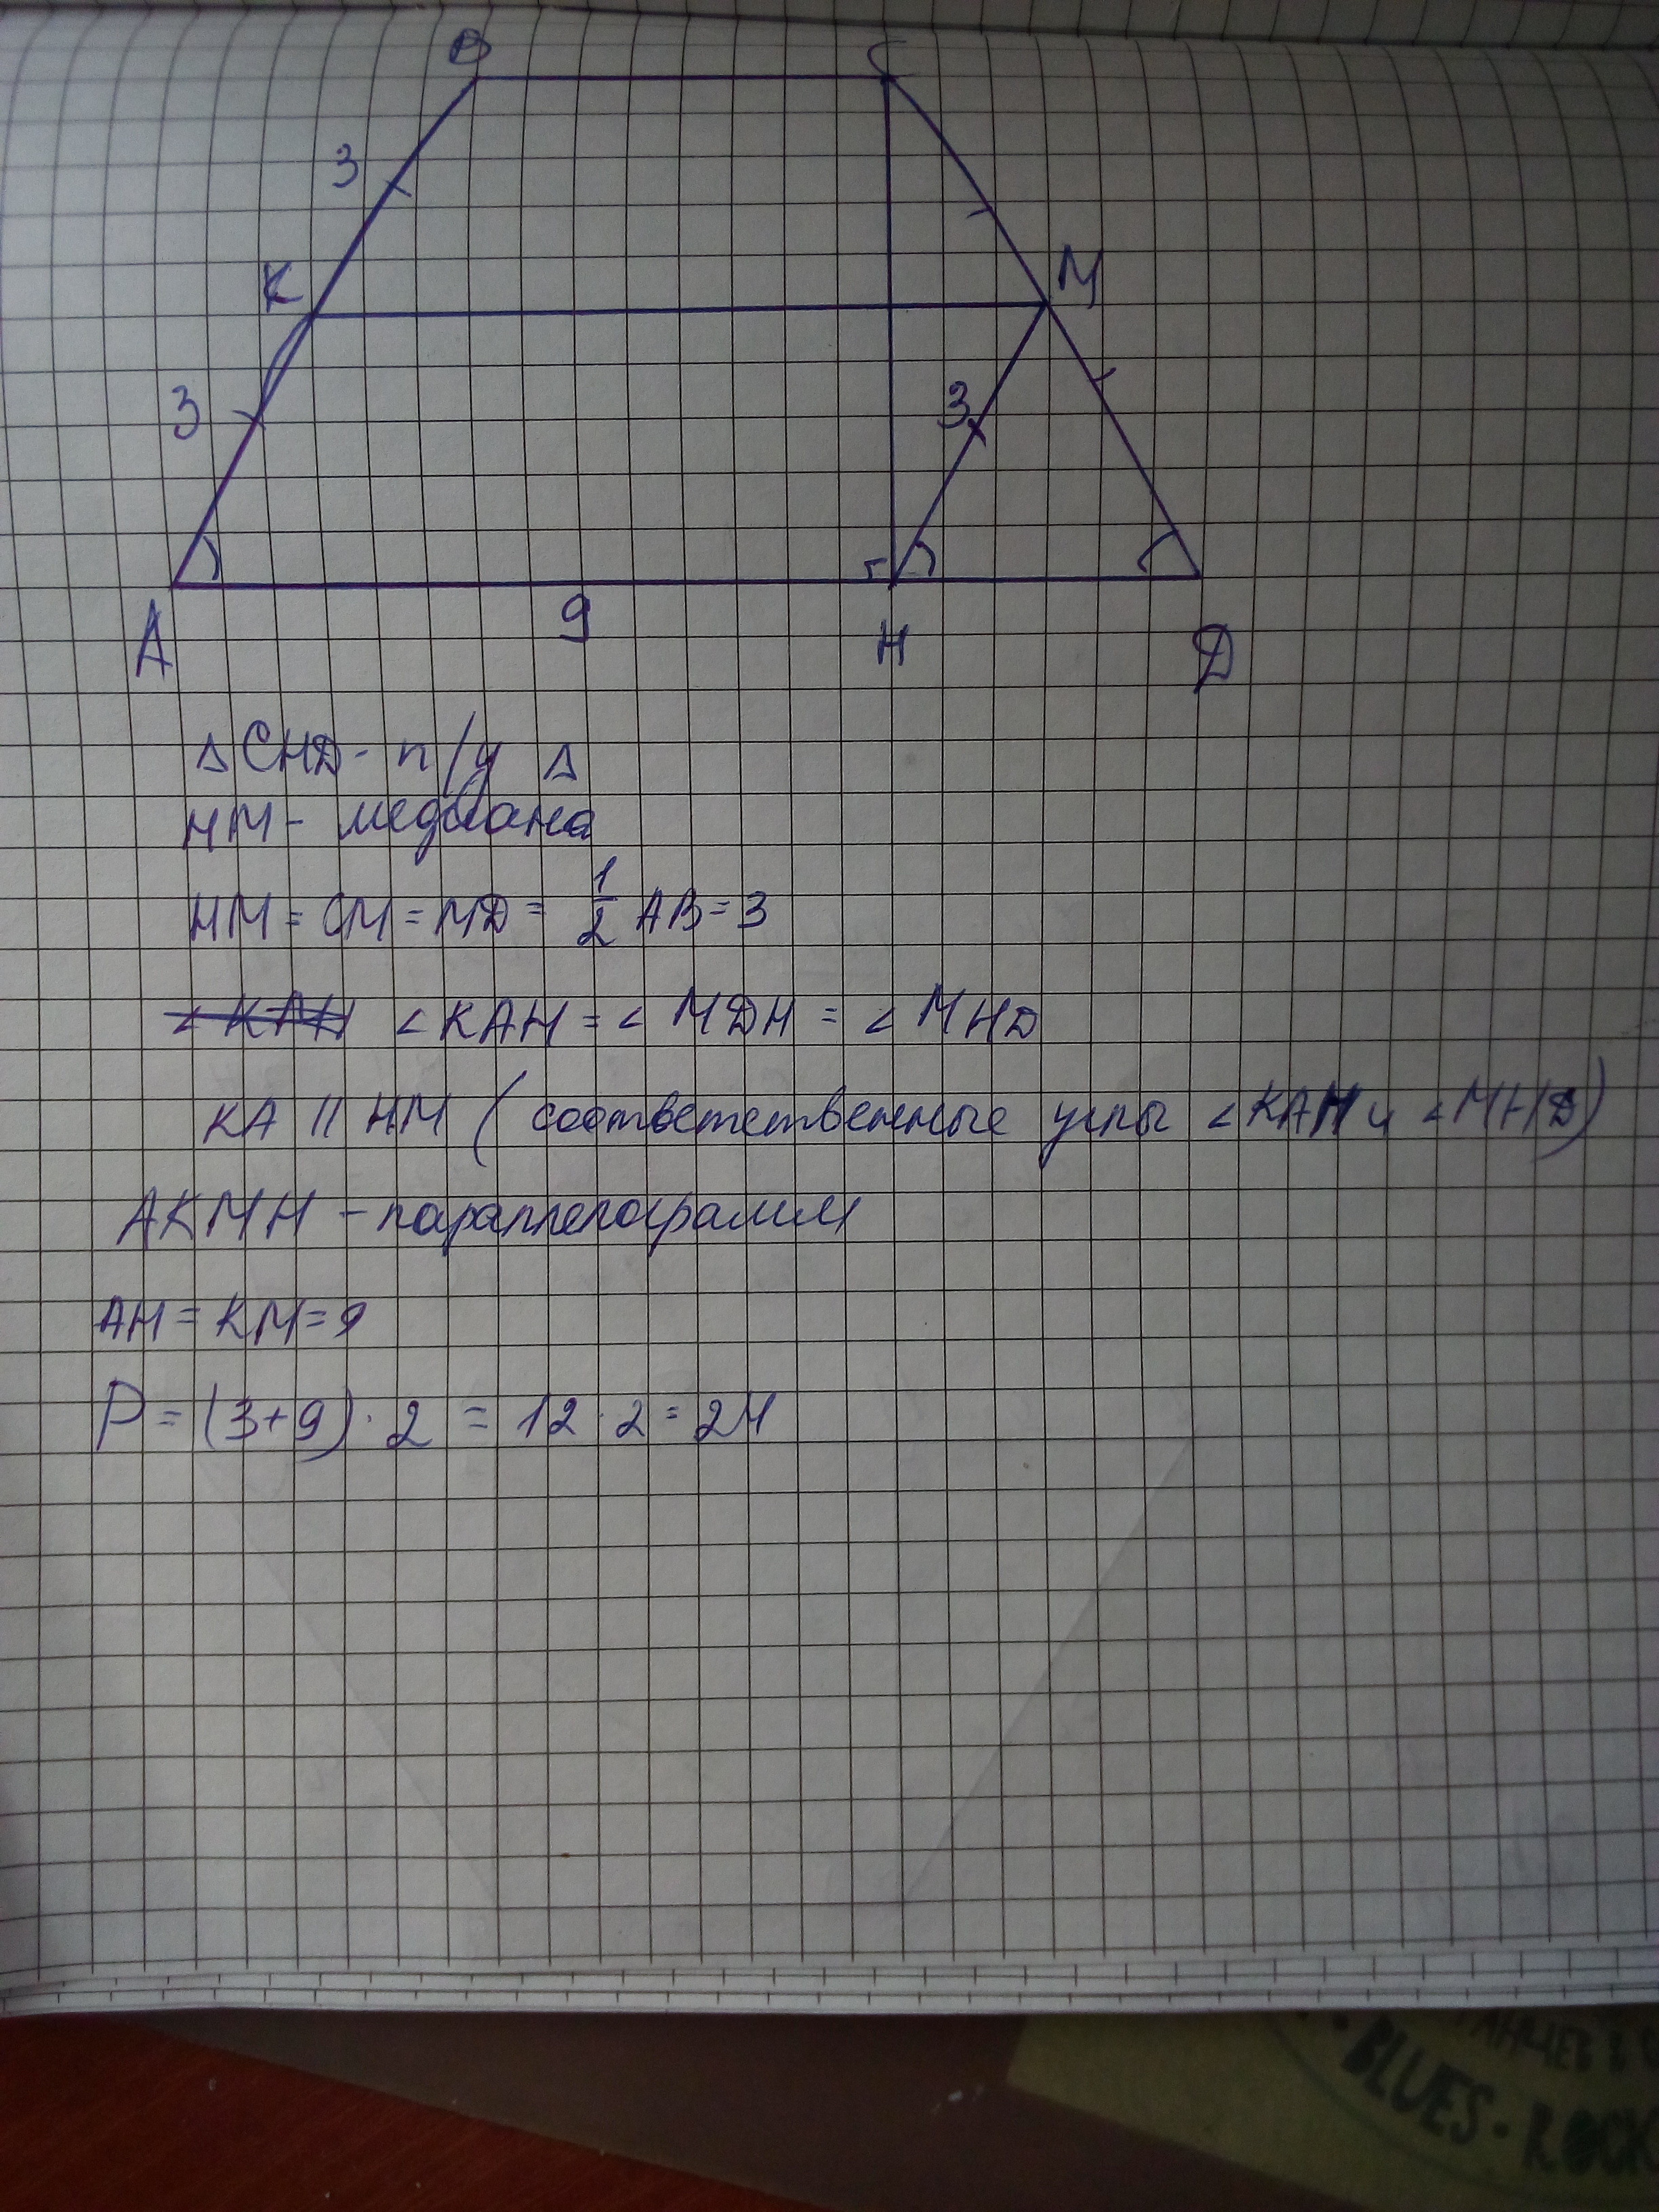 B C
3
K M
3 3
A 9 H D
Δ CHD - п/у Δ
HM - медиана
HM = CM = MD = 1/2 AB = 3
∠KAH ∠KAH = ∠MDH = ∠MHD
KA || HM (соответственные углы ∠KAH и ∠MHD)
AKMH - параллелограмм
AH = KM = 9
P = (3+9) · 2 = 12 · 2 = 24
· BLUES · ROCK